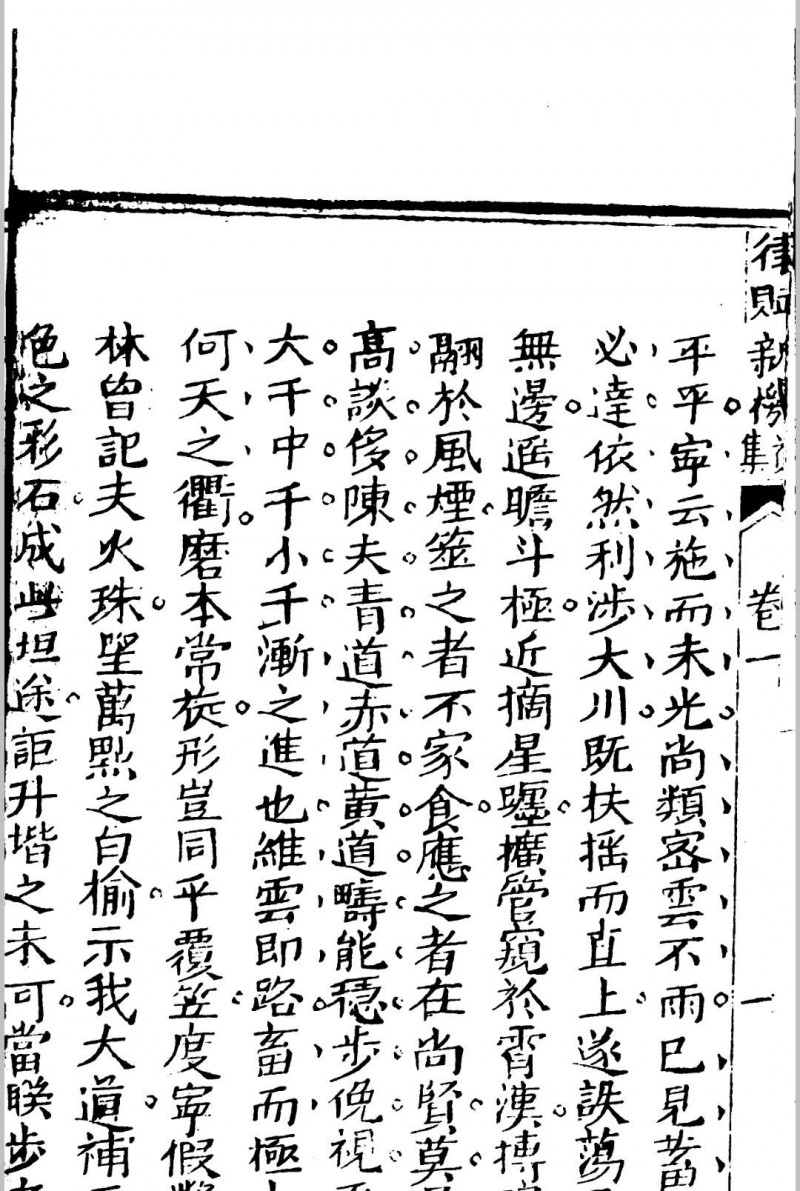 律賦新機 集
卷一
一
平平寕云施而未光尚類密雲不雨已見
必達依然利涉大川既扶揺而直上遂誇蕩
無邊遥瞻斗極近摘星躔擴管窺於霄漢摶
翮於風煙筮之者不家食應之者在尚賢莫
高談侈陳夫青道赤道黄道疇能穏步俛視
大千中千小千漸之進也維雲即路畜而極
何天之衢磨本常旋形豈同乎覆笠度寕假
林曽記夫火珠望萬㸃之白榆示我大道補
色之彩石成此坦途詎升堦之未可當聫步